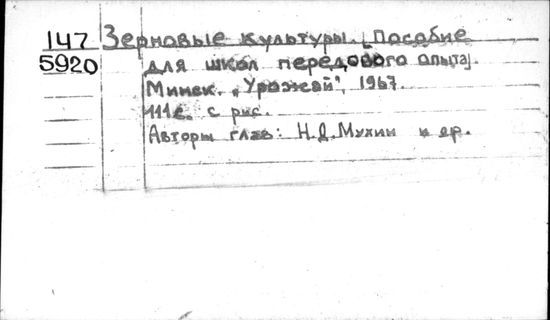 147 Зерновые культуры. [Пособие
5920 для школ передового опыта].
Минск. "Урожай", 1967.
111 с. с рис.
Авторы глав: Н.Д.Мухин и др.